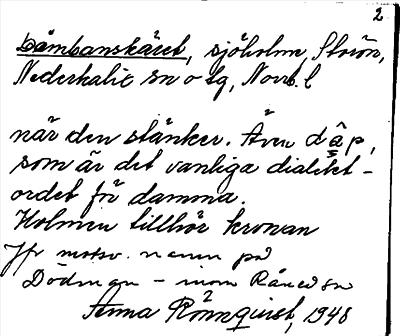 2
Dåmbanskäret, sjöholme, Storön,
Nederkalix sn o tg, Norrb. l
när den stänker. Även dåp,
som är det vanliga dialekt-
ordet för damma.
Holmen tillhör kronan
Jfr motsv. namn på
– inom Råneå sn
Anna Rönnquist, 1948